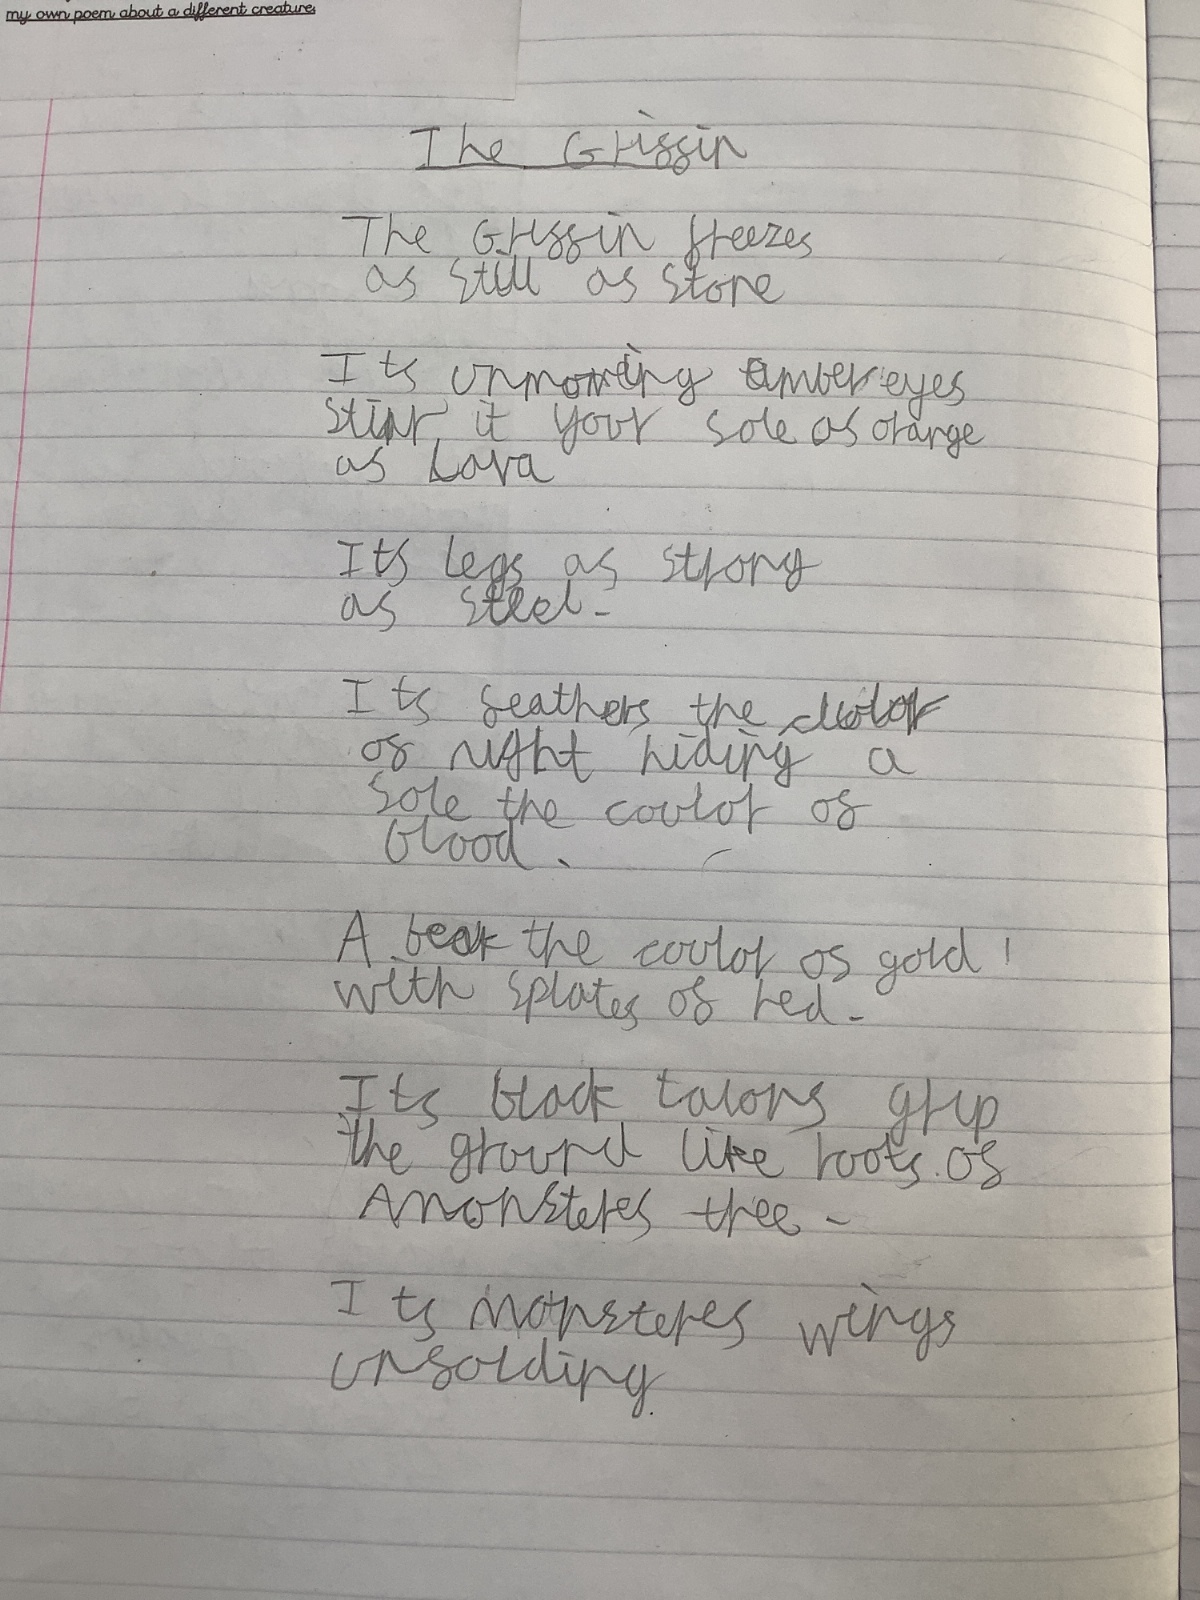 my own poem about a different creature
The Griffin
The Griffin freezes
as still as stone
Its unmoving amber eyes
it your sole as orange
as Lava
Its legs as strong
as steel.
Its feathers the colour
of night hiding a
sole the coulor of
blood.
A beak the coulor of gold
with splates of red.
Its black talons grip
the ground like roots of
A monsteres tree.
Its monsteres wings
unfolding